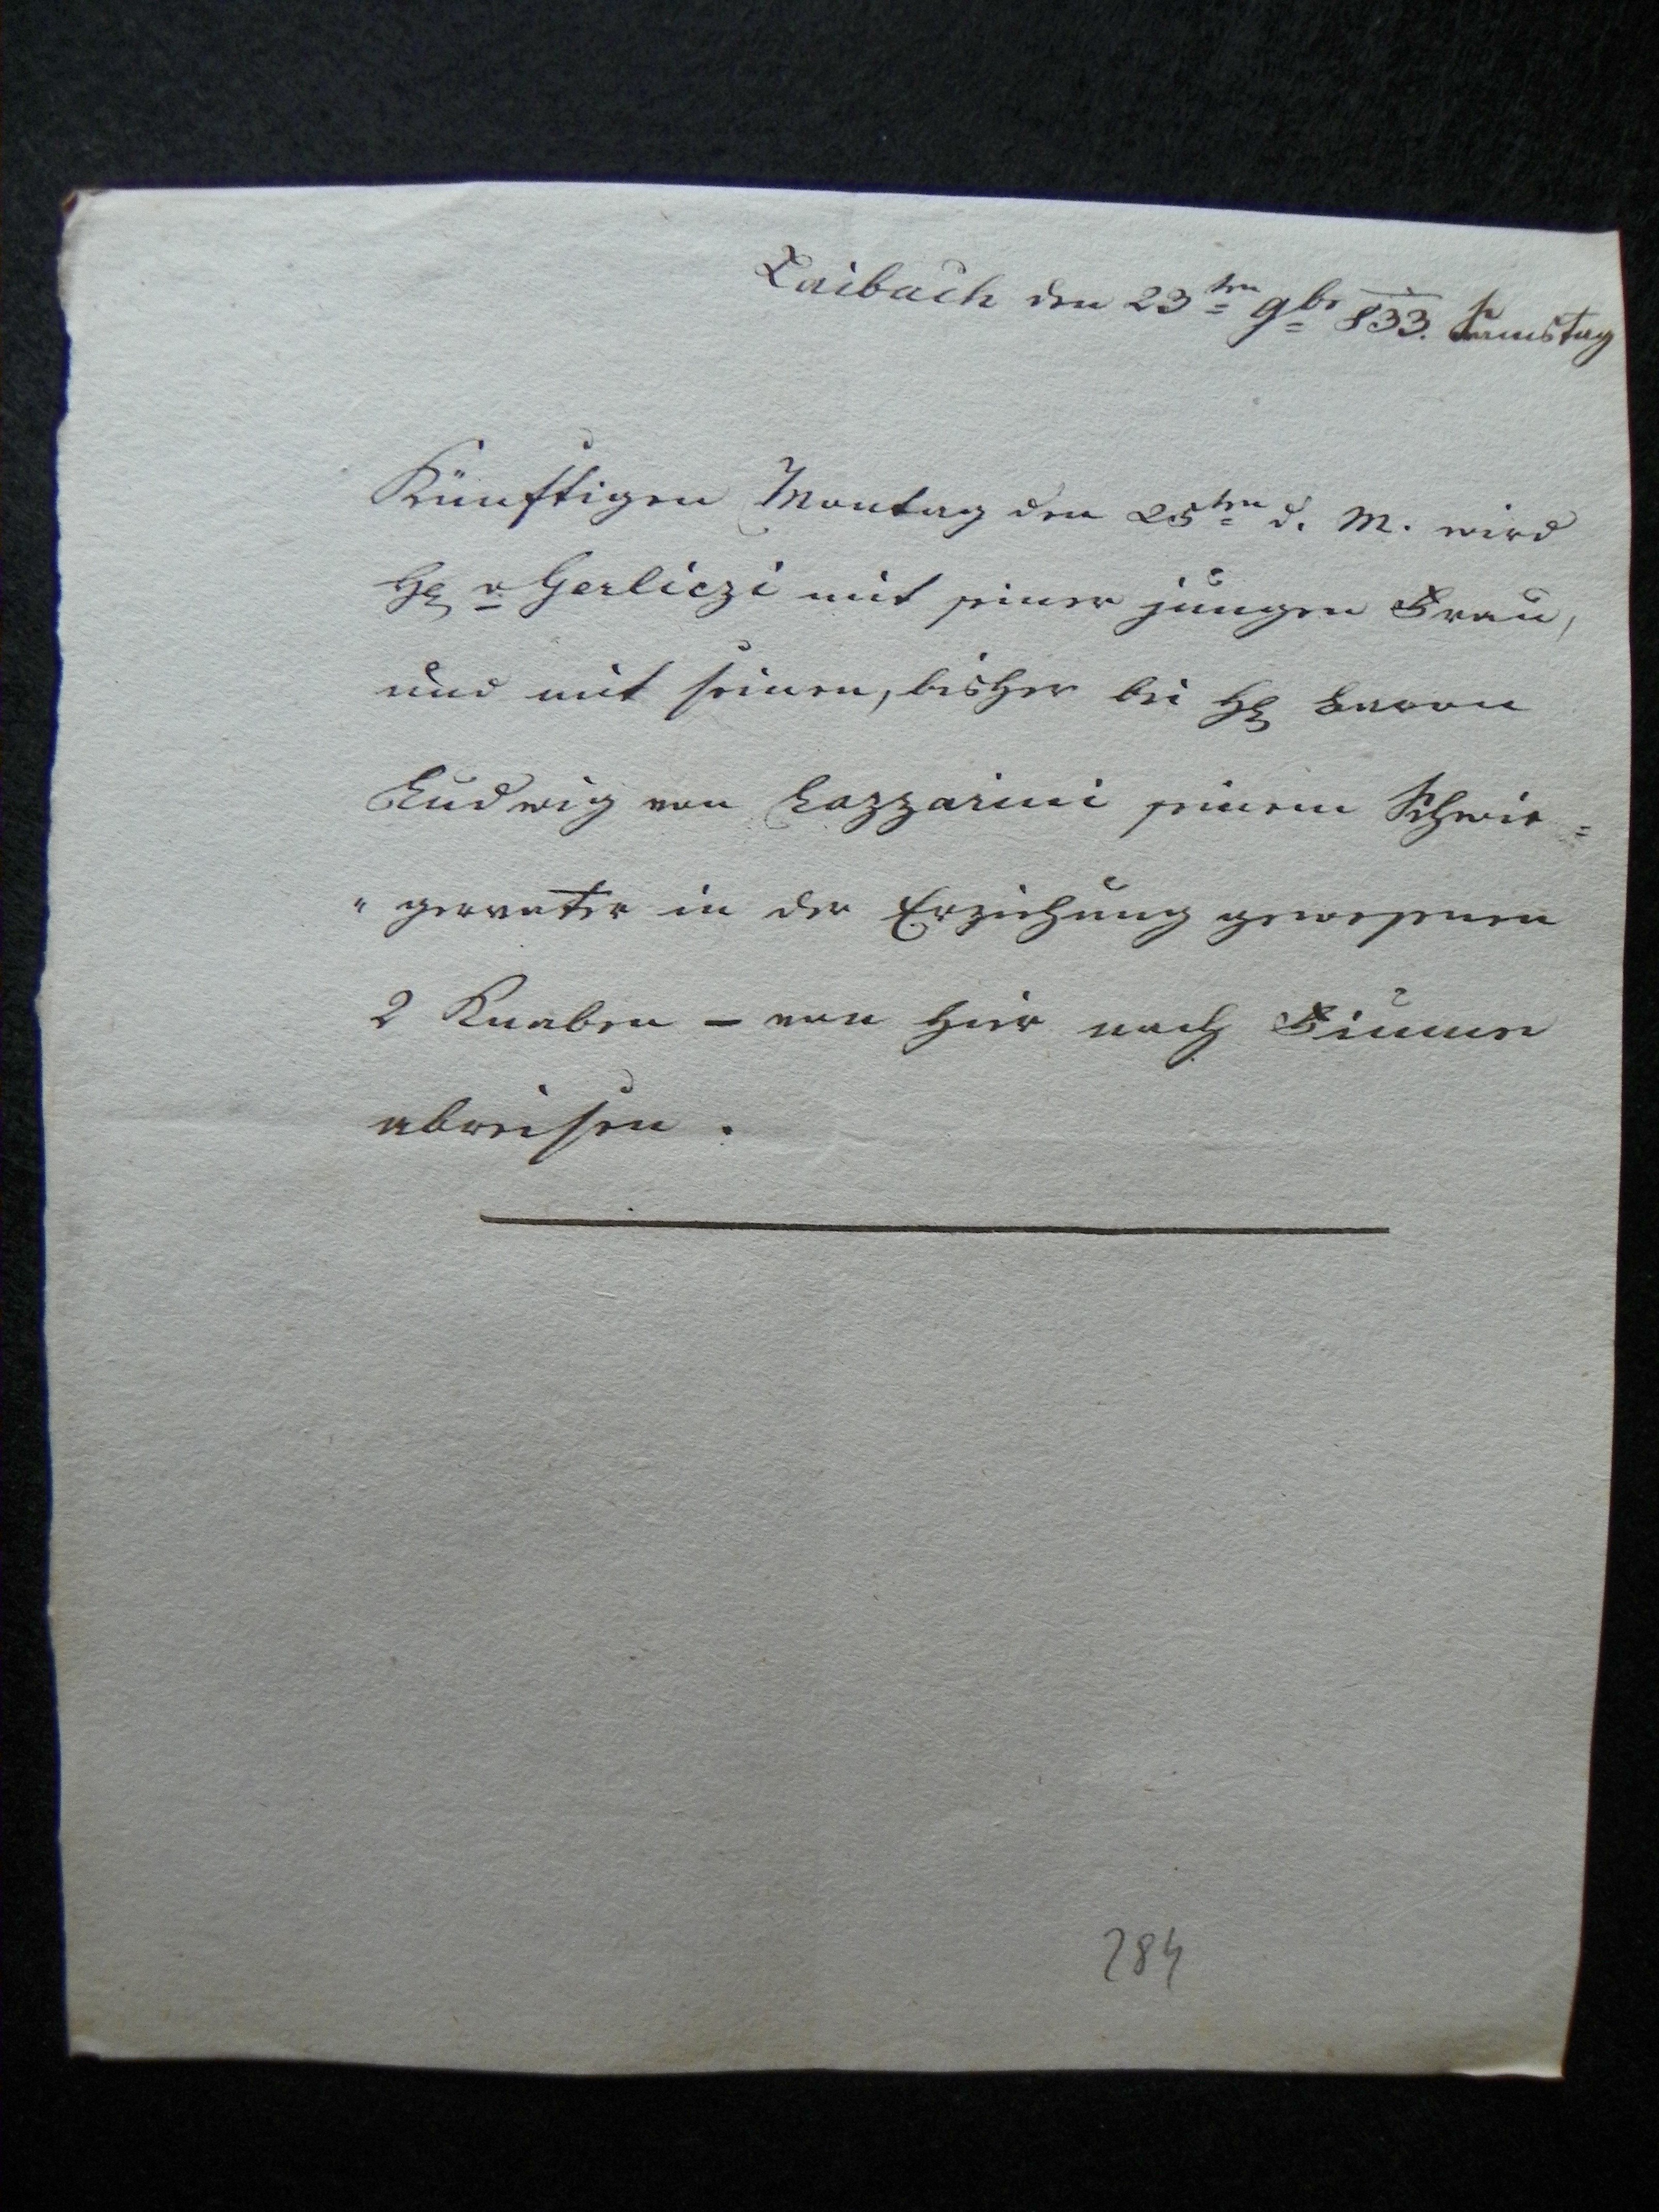 Laibach den 23ten 9br 833. Samstag
Künftigen Montag den 25ten d. M. wird
H. v. Gerliczi mit seiner jungen Frau,
und mit seinen, bisher bei H. Baron
Ludwig von Lazzarini seinem Schwie=
"gervater in der Erziehung gewesenen
2 Knaben – von hier nach Fiume
abreisen.
284